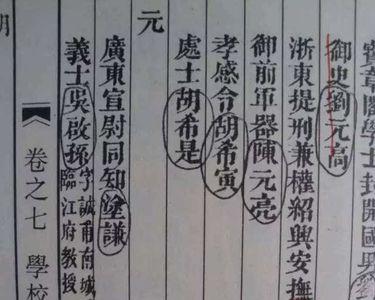 寶章閣學士封開國
御史劉元高
浙東提刑兼權紹興安撫
御前軍器陳元亮
孝感令胡希寅
處士胡希是
元
廣東宣尉同知塗謙
義士吳啟孫字誠甫南城臨江府教授
卷之七 學校
明